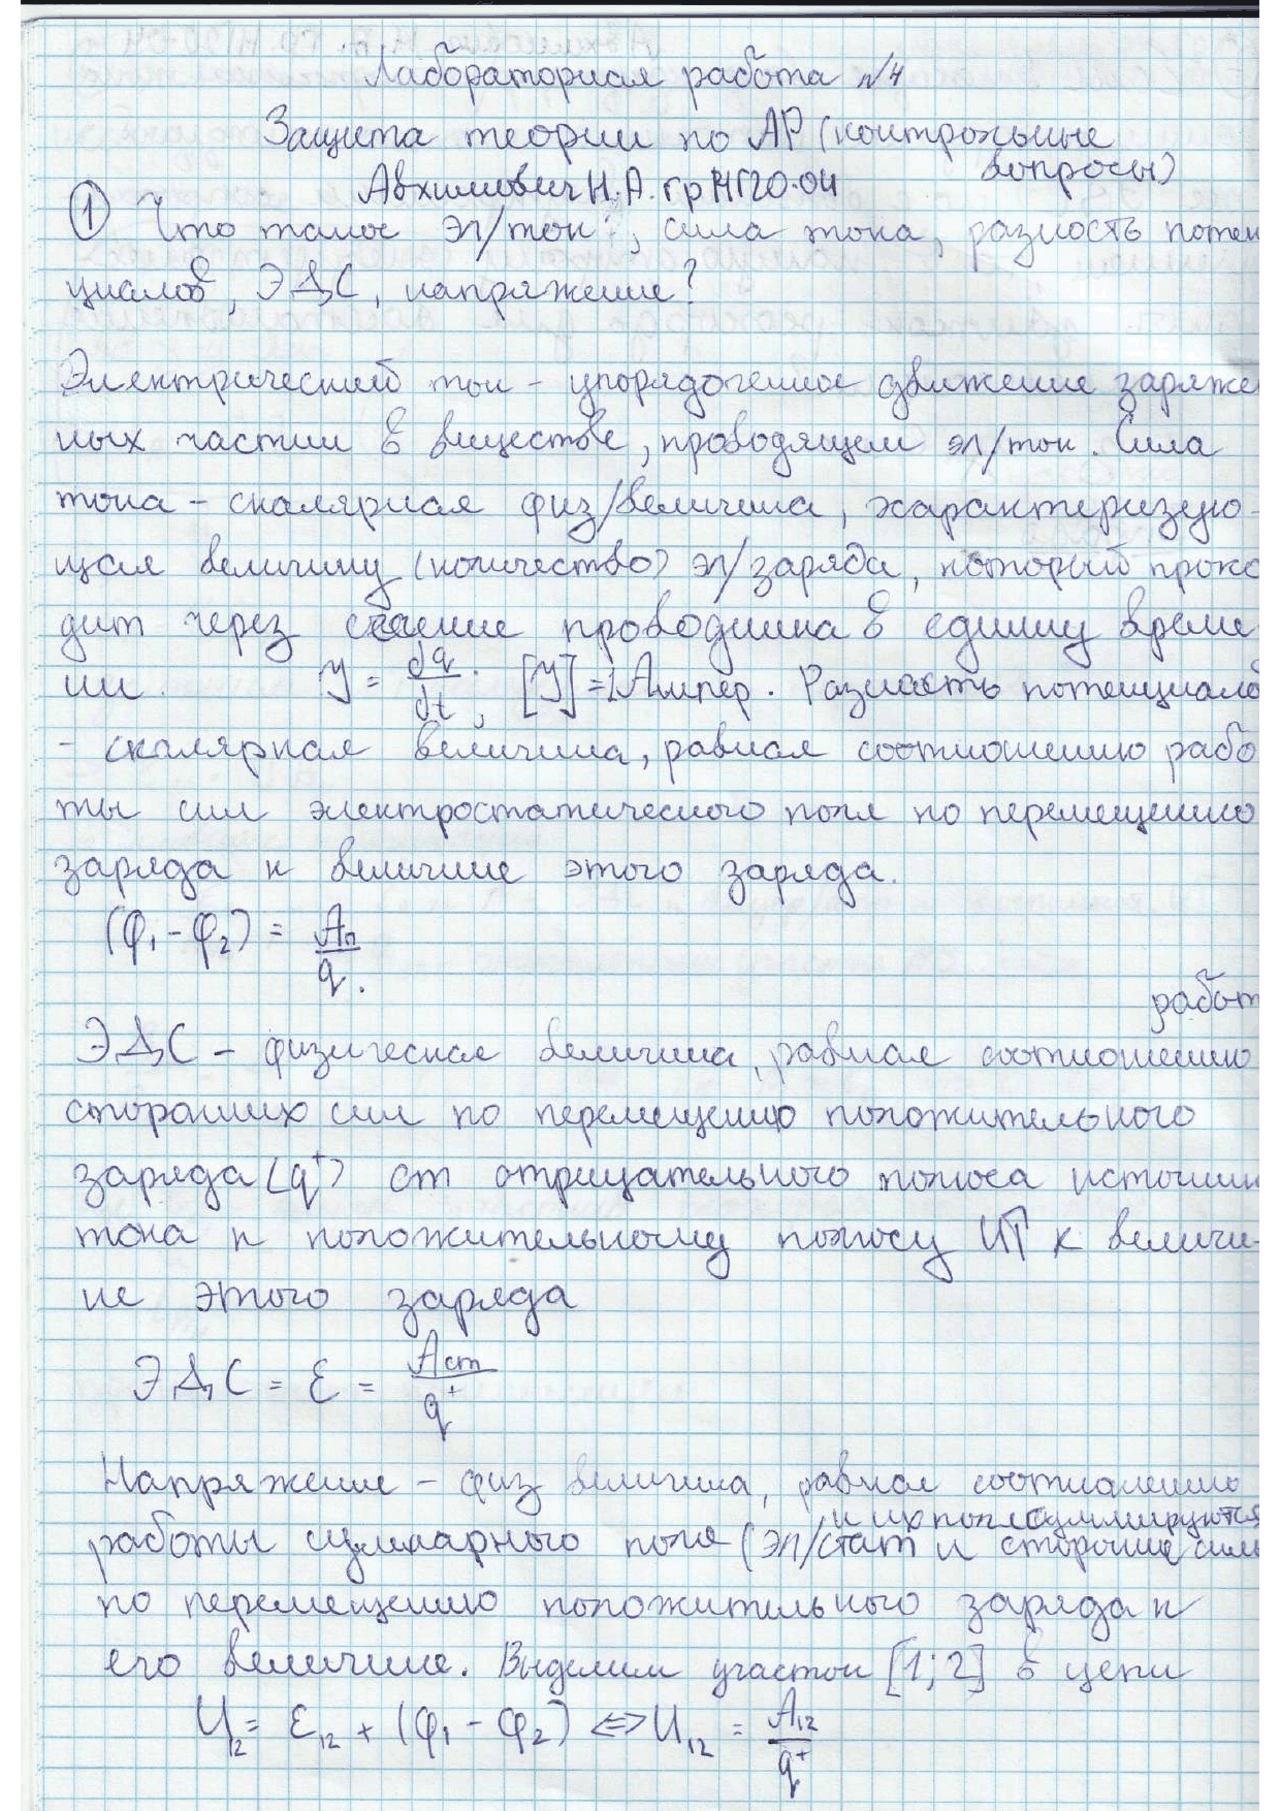 Лабораторная работа №4
Защита теории по ЛР (контрольные
вопросы)
Авхимович Н.А. гр НГ20-04
① Что такое эл/ток, сила тока, разность потен
циалов, ЭДС, напряжение?
Электрический ток - упорядоченное движение заряже
ных частиц в веществе, проводящем эл/ток. Сила
тока - скалярная физ/величина, характеризую-
щая величину (количество) эл/заряда, который прохо
дит через сечение проводника в единицу време
ни. J = dq/dt; [J]=1Ампер. Разность потенциало
- скалярная величина, равная соотношению рабо
ты сил электростатического поля по перемещению
заряда к величине этого заряда.
(φ₁ - φ₂) = Aп/q.
работ
ЭДС - физическая величина, равная соотношению
сторонних сил по перемещению положительного
заряда (q⁺) от отрицательного полюса источник
тока к положительному полюсу ИТ к величи-
не этого заряда
ЭДС = ℰ = Aст/q⁺
Напряжение - физ величина, равная соотношению
и их поля суммируются
работы суммарного поля (эл/стат и сторонние силы
по перемещению положительного заряда к
его величине. Выделим участок [1;2] в цепи
U₁₂ = ℰ₁₂ + (φ₁ - φ₂) <=> U₁₂ = A₁₂/q⁺